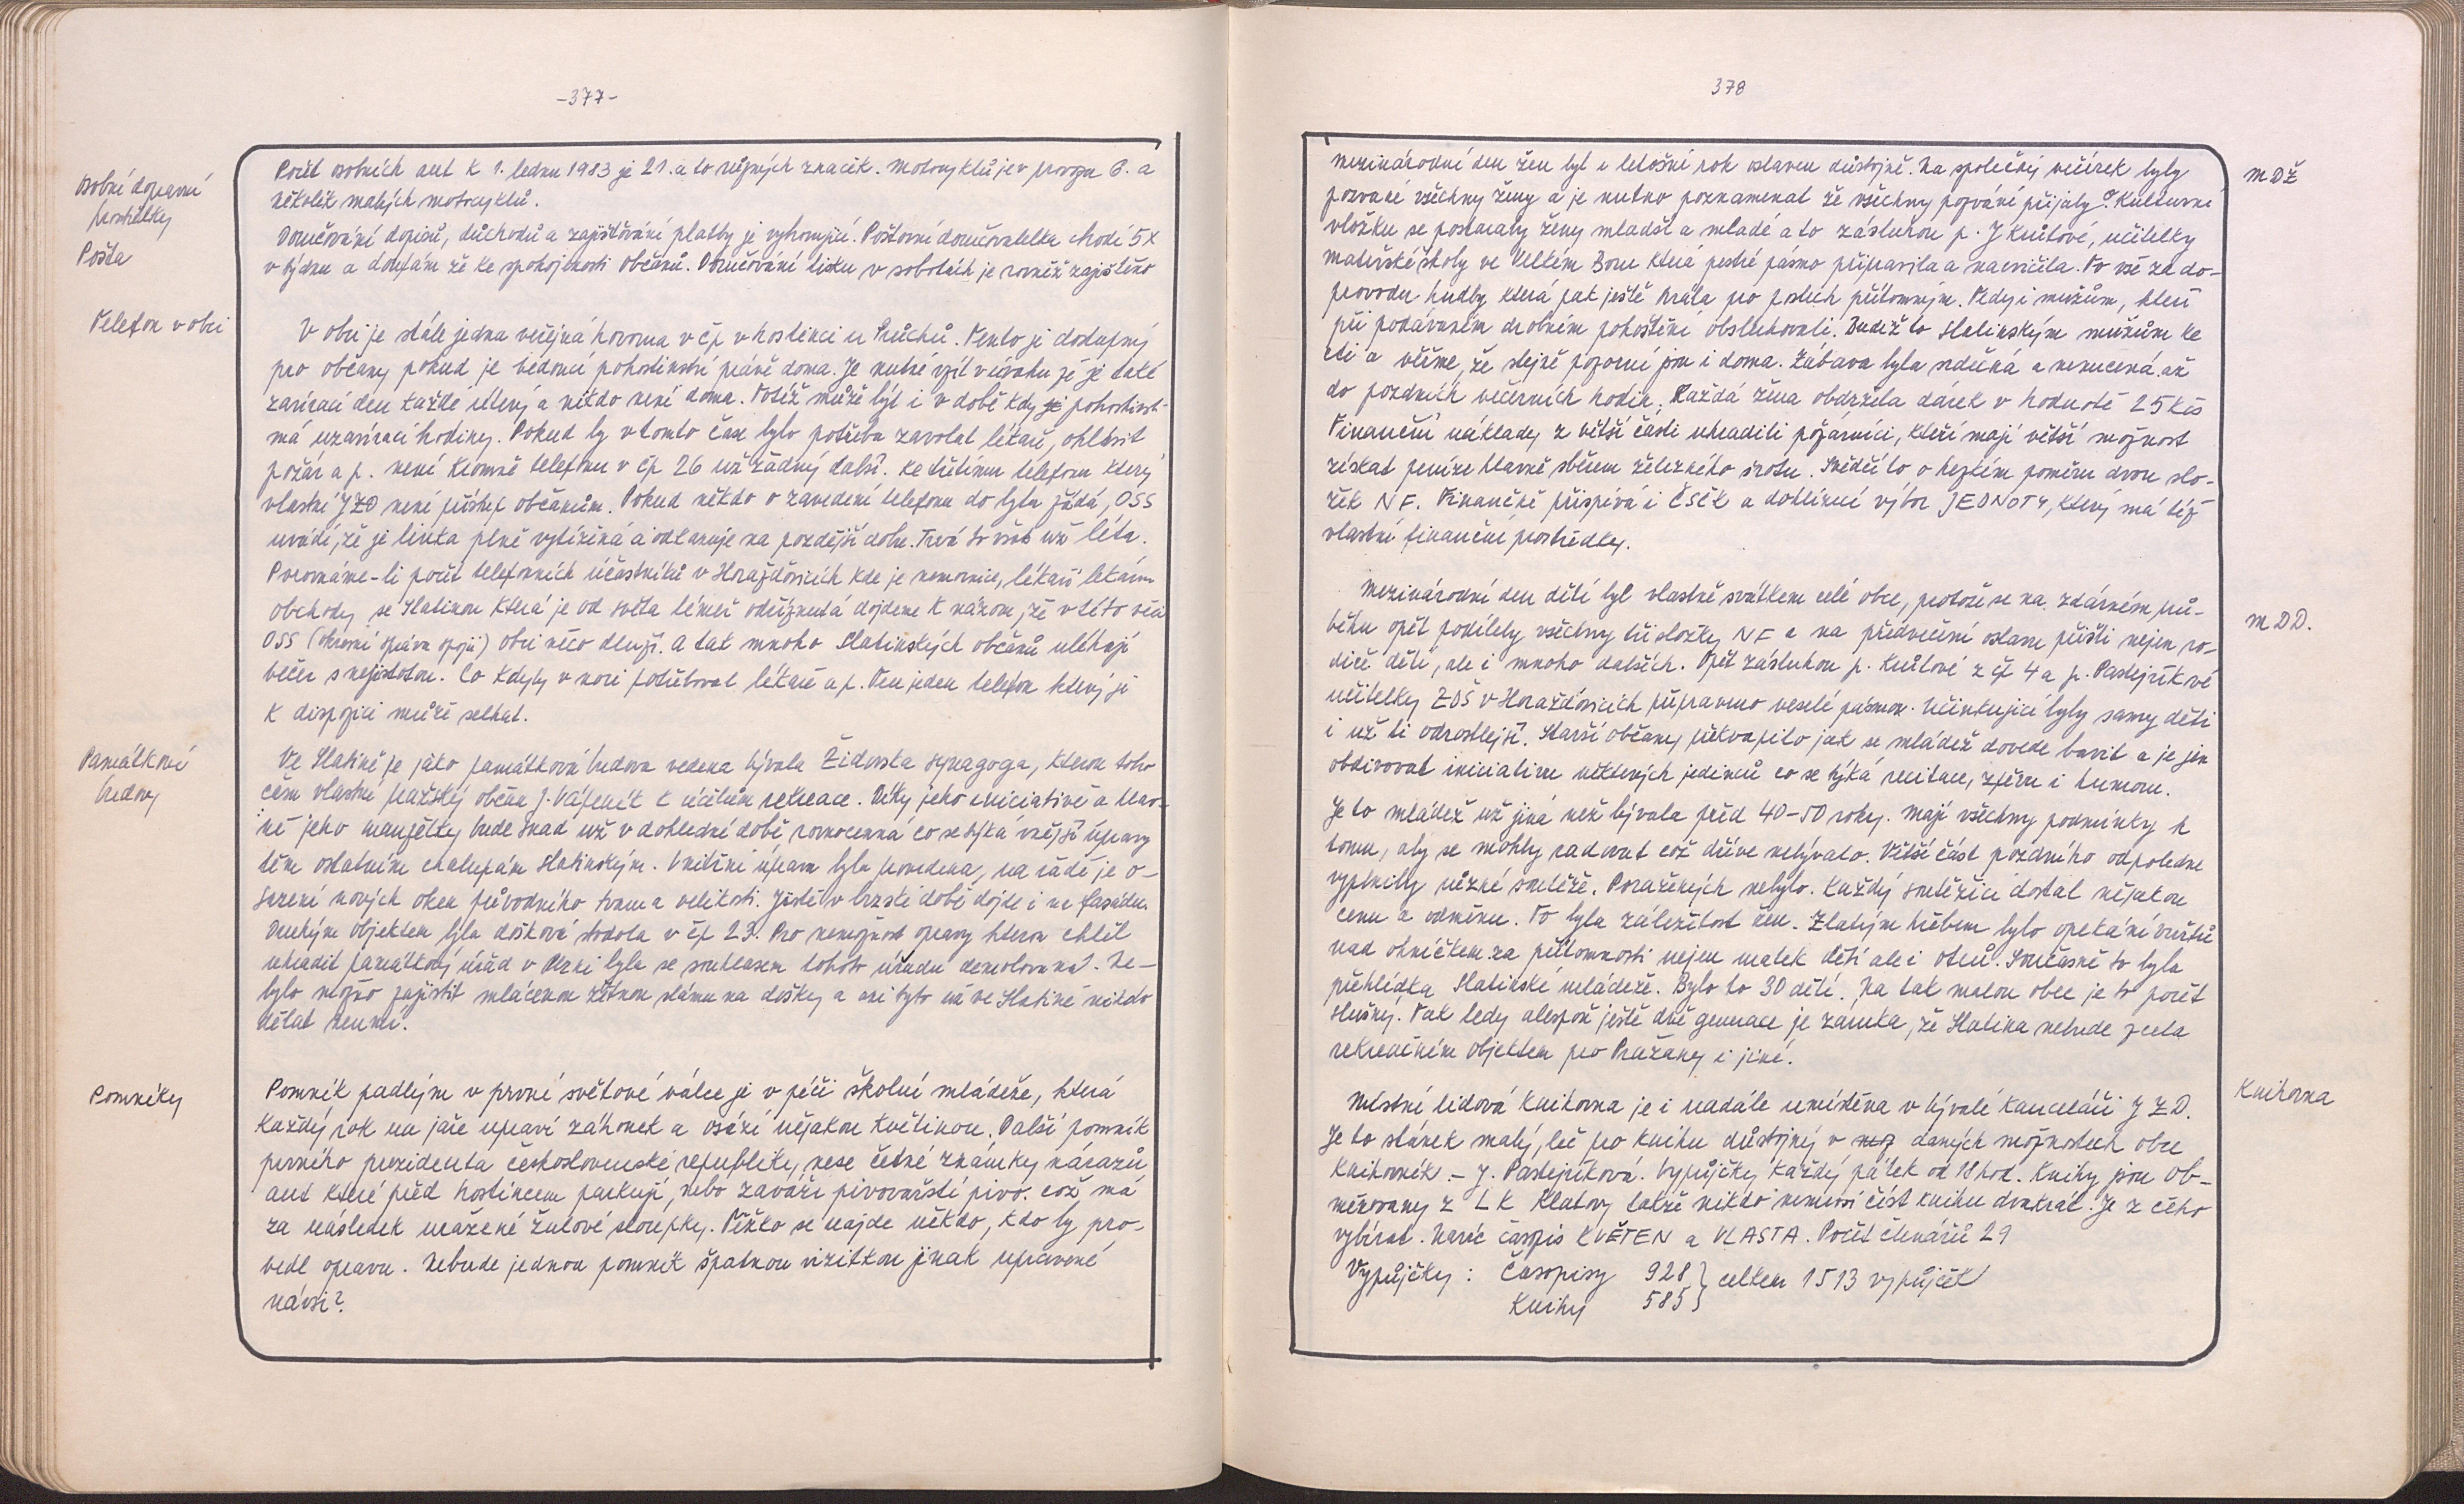 -377-
Osobní dopravní
prostředky
Počet osobních aut k 1. lednu 1983 je 21. a to různých značek. Motocyklů je v provozu 6. a
několik malých motocyklů.
Pošta
Doručování dopisů, důchodů a zajišťování platby je vyhovující. Poštovní doručovatelka chodí 5x
v týdnu a doufám že ke spokojenosti občanů. Doručování tisku v sobotách je rovněž zajištěno
Telefon v obci
V obci je stále jedna veřejná hovorna v čp v hostinci u Průchů. Tento je dostupný
pro občany pokud je vedoucí pohostinství právě doma. Je nutné vzít v úvahu že je také
zavírací den každé úterý a nikdo není doma. Totéž může být i v době kdy je pohostinst-
má uzavírací hodiny. Pokud by v tomto čase bylo potřeba zavolat lékaře, ohlásit
požár a p. není kromě telefonu v čp 26 už žádný další. Ke třetímu telefonu který
vlastní JZD není přístup občanům. Pokud někdo o zavedení telefonu do bytu žádá, OSS
uvádí, že je linka plně vytížená a odkazuje na pozdější dobu. Trvá to však už léta.
Porovnáme-li počet telefonních účastníků v Horažďovicích kde je nemocnice, lékaři lékárna
obchody se Slatinou která je od světa téměř odříznutá dojdeme k názoru, že v této věci
OSS (okresní správa spojů) obci něco dluží. A tak mnoho Slatinských občanů uléhají
večer s nejistotou. Co kdyby v noci potřeboval lékaře a p. Ten jeden telefon který je
k dispozici může selhat.
Památkové
budovy
Ve Slatině je jako památková budova vedena bývalá Židovská synagoga, kterou toho
času vlastní pražský občan J. Vápeník k účelům rekreace. Díky jeho iniciativě a hlav-
ně jeho manželky bude snad už v dohledné době rovnocenná co se týká vnější úpravy
těm ostatním chalupám slatinským. Vnitřní úprava byla provedena, na řadě je o-
sazení nových oken původního tvaru a velikosti. Jistě v brzské době dojde i na fasádu.
Druhým objektem byla došková stodola v čp 23. Pro nemožnost opravy kterou chtěl
uhradit památkový úřad v Plzni byla se souhlasem tohoto úřadu demolována. Ne-
bylo možno zajistit mlácenou žitnou slámu na došky a ani tyto už ve Slatině nikdo
dělat neumí.
Pomníky
Pomník padlým v první světové válce je v péči školní mládeže, která
každý rok na jaře upraví záhonek a osází nějakou květinou. Další pomník
prvního prezidenta československé republiky nese četné známky nárazů
aut které před hostincem parkují, nebo zaváží pivovarští pivo. což má
za následek uražené žulové sloupky. Těžko se najde někdo, kdo by pro-
vedl opravu. Nebude jednou pomník špatnou vizitkou jinak upravené
návsi?
378
MDŽ
Mezinárodní den žen byl i letošní rok oslaven důstojně. Na společný večírek byly
pozvané všechny ženy a je nutno poznamenat že všechny pozvání přijaly. O kulturní
vložku se postaraly ženy mladší a mladé a to zásluhou p. J Knížové, učitelky
mateřské školy ve Velkém Boru která pestré pásmo připravila a nacvičila. To vše za do-
provodu hudby která pak ještě hrála pro poslech přítomným. Tedy i mužům, kteří
při podávaném drobném pohoštění obsluhovali. Budiž to slatinským mužům ke
cti a věřme, že stejně pozorní jsou i doma. Zábava byla srdečná a nenucená až
do pozdních večerních hodin. Každá žena obdržela dárek v hodnotě 25 Kčs
Finanční náklady z větší části uhradili požárníci, kteří mají větší možnost
získat peníze hlavně sběrem železného šrotu. Svědčí to o hezkém poměru dvou slo-
žek NF. Finančně přispívá i ČSČK a dohlížecí výbor JEDNOTY, který má též
vlastní finanční prostředky.
MDD.
Mezinárodní den dětí byl vlastně svátkem celé obce, protože se na zdárném prů-
běhu opět podílely všechny tři složky NF a na předvečerní oslavu přišli nejen ro-
diče dětí, ale i mnoho dalších. Opět zásluhou p. Knížové z čp 4 a p. Pastejříkvé
učitelky ZDŠ v Horažďovicích připraveno veselé pásmo. Účinkující byly samy děti
i už ti odrostlejší. Starší občany překvapilo jak se mládež dovede bavit a je jen
obdivovat iniciativu některých jedinců co se týká recitace, zpěvu i humoru.
Je to mládež už jiná než bývala před 40-50 roky. Mají všechny podmínky k
tomu, aby se mohly radovat což dříve nebývalo. Větší část pozdního odpoledne
vyplnily různé soutěže. Poražených nebylo. Každý soutěžící dostal nějakou
cenu a odměnu. To byla záležitost žen. Zlatým hřebem bylo opékání vuřtů
nad ohníčkem za přítomnosti nejen matek dětí ale i otců. Současně to byla
přehlídka Slatinské mládeže. Bylo to 30 dětí. Na tak malou obec je to počet
slušný. Tak tedy alespoň ještě dvě generace je záruka, že Slatina nebude zcela
rekreačním objektem pro Pražany i jiné.
Knihovna
Místní lidová knihovna je i nadále umístěna v bývalé kanceláři JZD.
Je to stánek malý, leč pro knihu důstojný v daných možnostech obce
Knihovník - J. Pastejříková. Vypůjčky každý pátek od 18 hod. Knihy jsou ob-
měňovany z LK Klatovy takže nikdo nemusí číst knihu dvakrát. Je z čeho
vybírat. Navíc časopis KVĚTEN a VLASTA. Počet čtenářů 29
Vypůjčky: Časopisy 928 } celkem 1513 vypůjček
Knihy 585